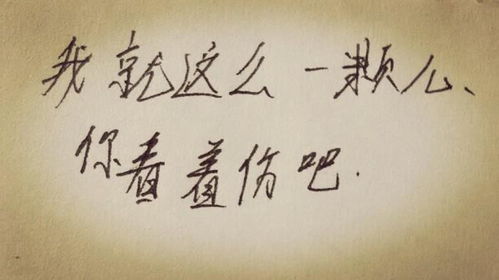 我就这么一颗心、
你看着伤吧.